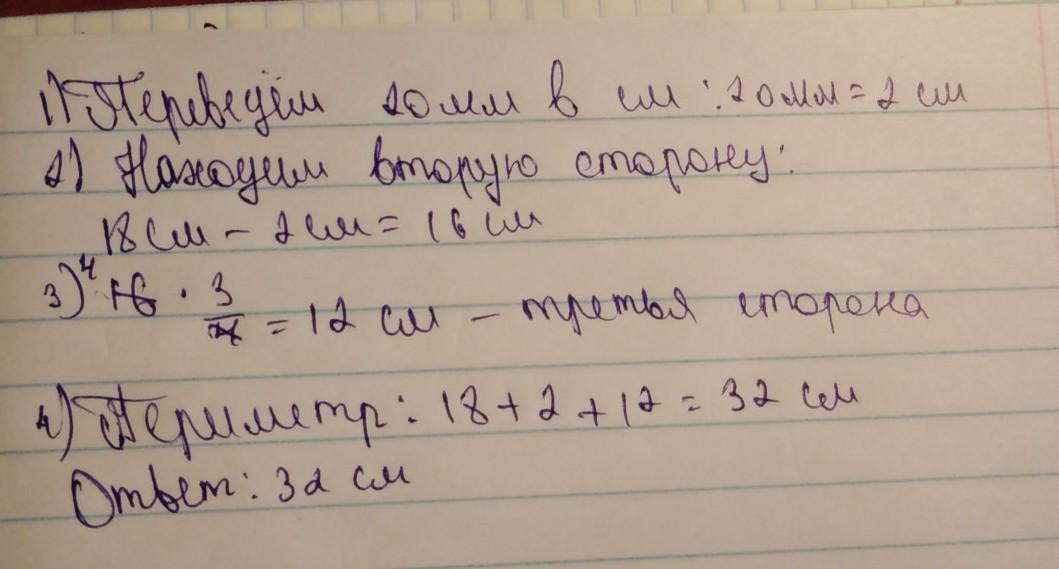 1) Переведём 20 мм в см : 20 мм = 2 см
2) Находим вторую сторону:
18 см - 2 см = 16 см
3) 4 16 · 3/4 = 12 см - третья сторона
4) Периметр: 18 + 2 + 12 = 32 см
Ответ: 32 см